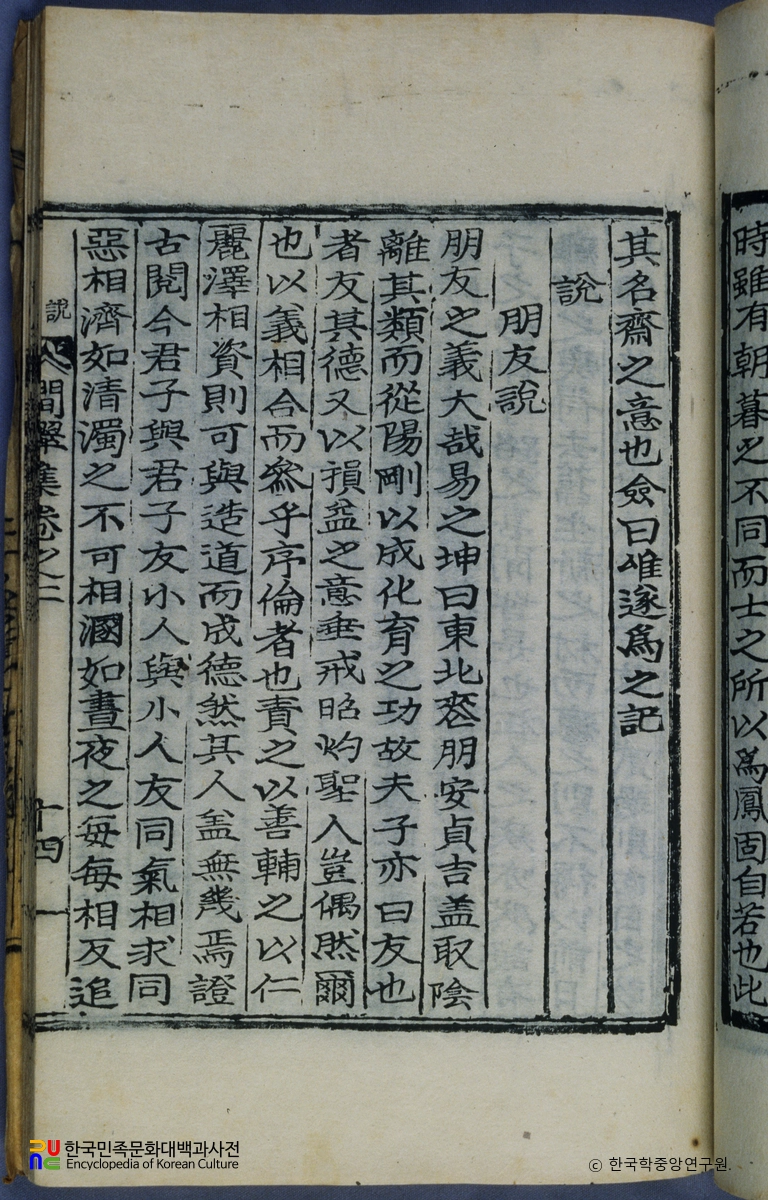 時雖有朝暮之不同而士之所以爲鳳固自若也此
其名齋之意也僉曰唯遂爲之記
說
朋友說
朋友之義大哉易之坤曰東北喪朋安貞吉盖取陰
離其類而從陽剛以成化育之功故夫子亦曰友也
者友其德又以損益之意垂戒昭灼聖人豈偶然爾
也以義相合而叅乎序倫者也責之以善輔之以仁
麗澤相資則可與造道而成德然其人盖無幾焉證
古閱今君子與君子友小人與小人友同氣相求同
惡相濟如清濁之不可相溷如晝夜之每每相反追
說
集卷之二
十四
한국민족문화대백과사전
Encyclopedia of Korean Culture
© 한국학중앙연구원.